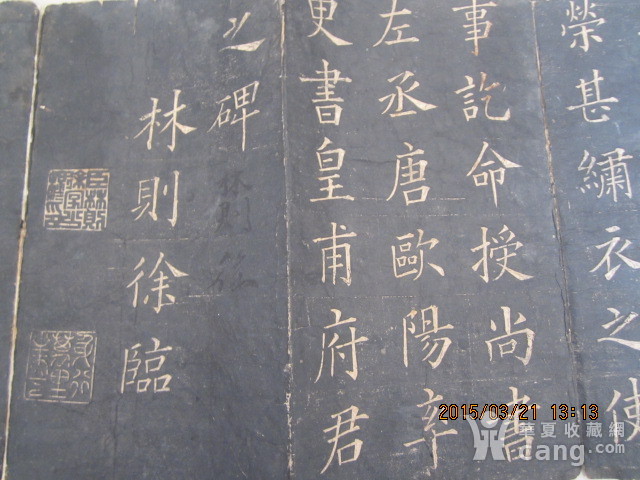 榮甚繡衣之使
事訖命授尚書
左丞唐歐陽辛
更書皇甫府君
之碑
林則徐
林則徐臨
2015/03/21 13:13
華夏收藏網
cang.com